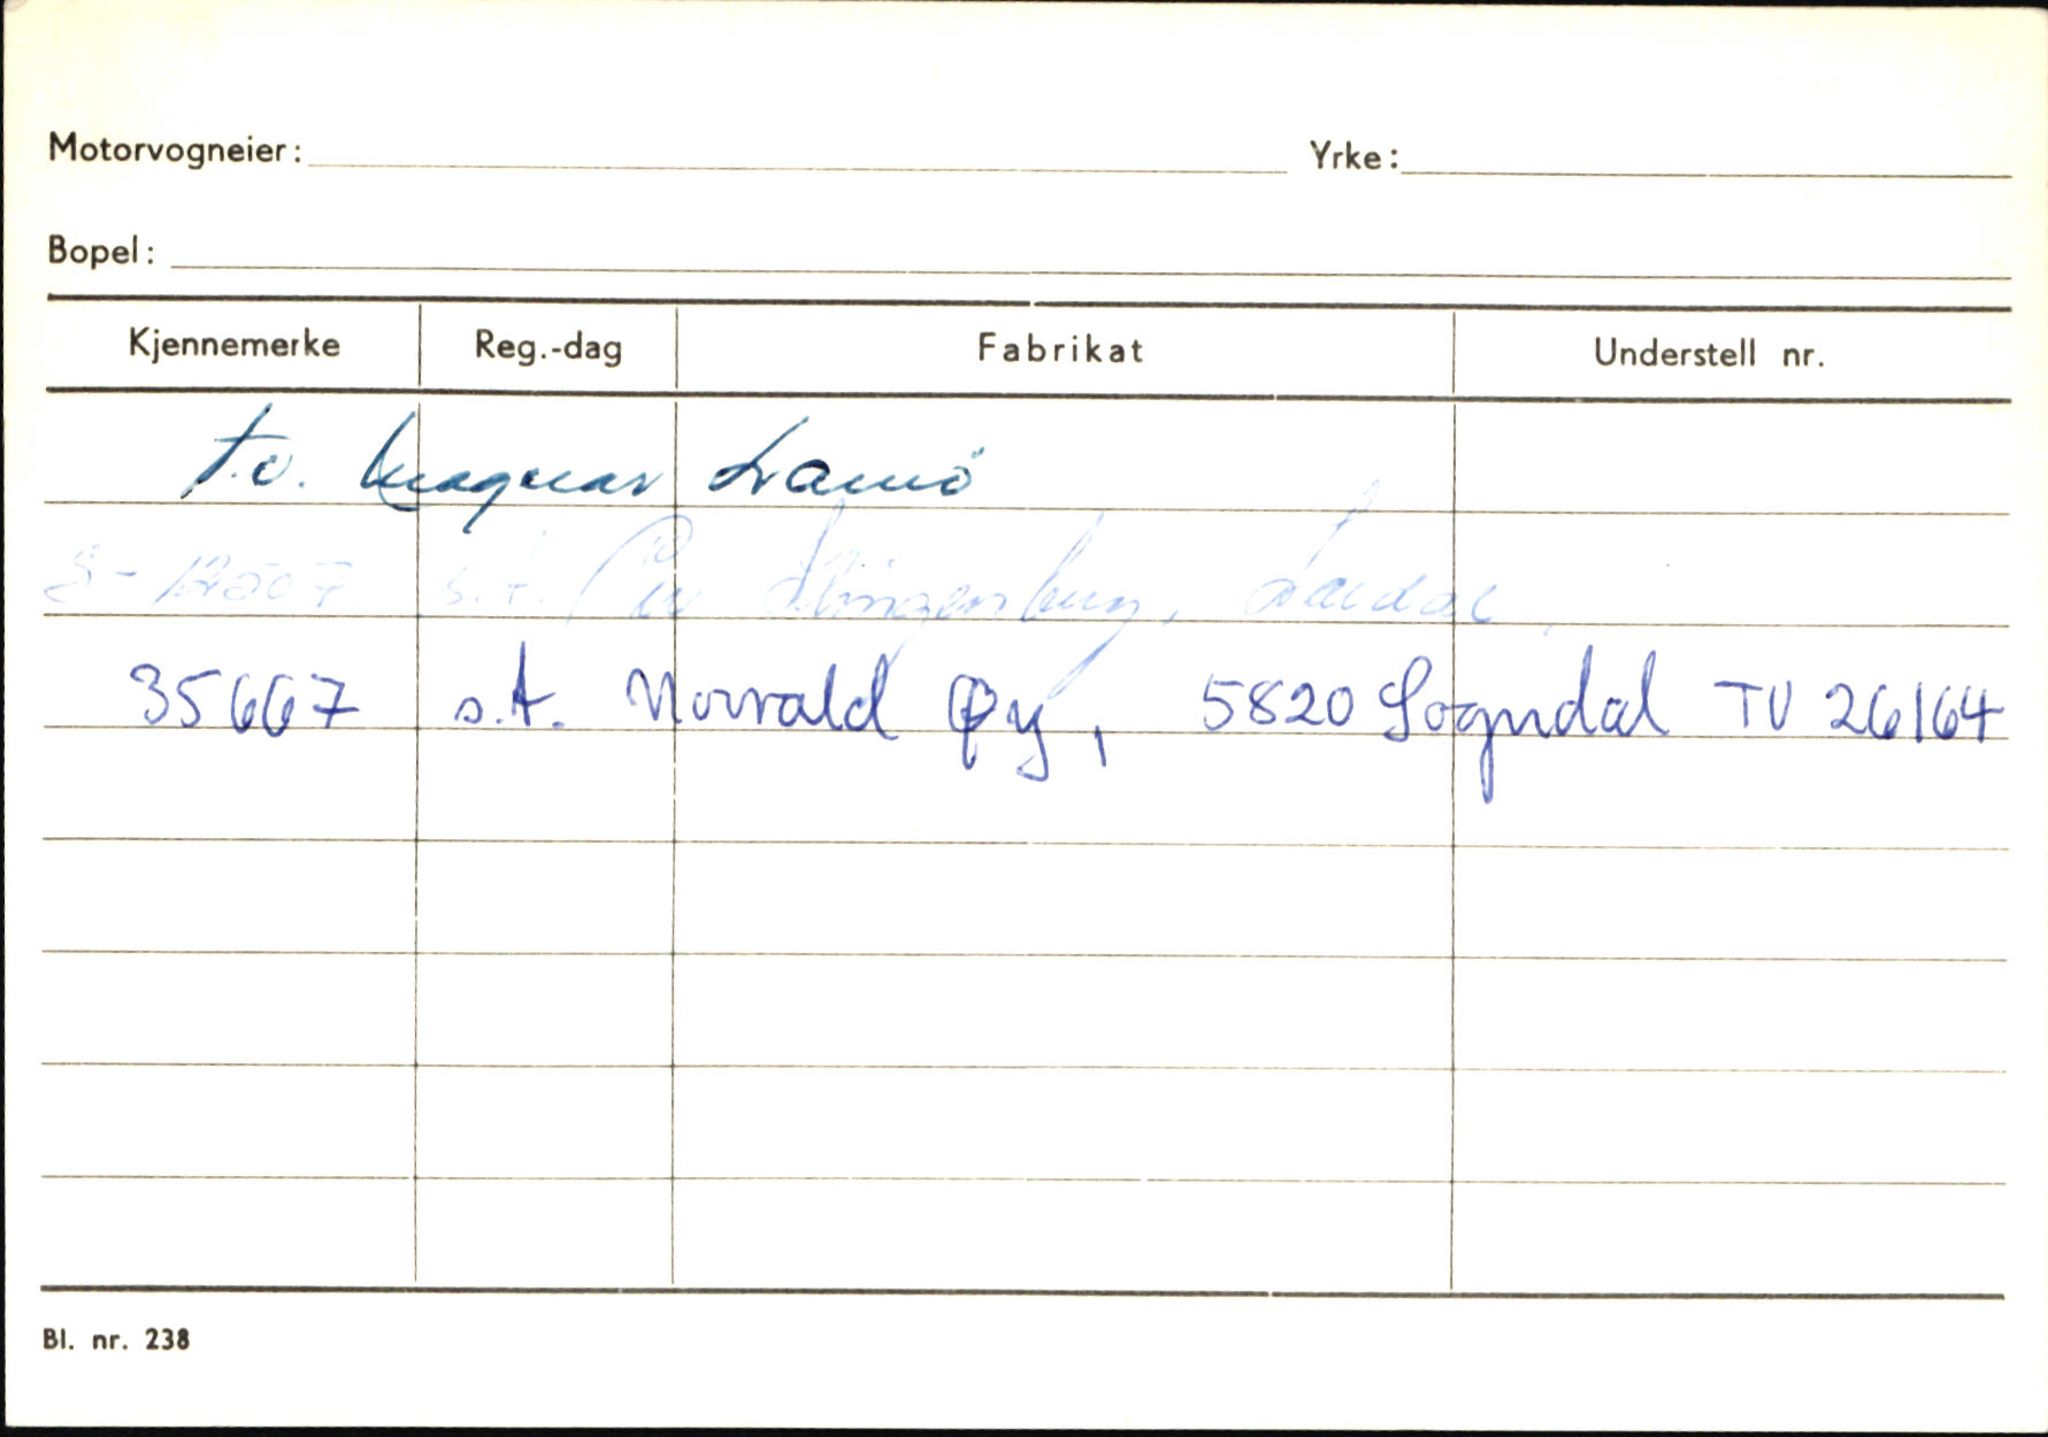 Motorvogneier: Yrke:
Bopel:
Kjennemerke Reg.-dag Fabrikat Understell nr.
t.o. Magnar
s.t. Klingenberg, Lærdal
35667 s.t. Norvald Øy, 5820 Sogndal TV 26164
Bl. nr. 238